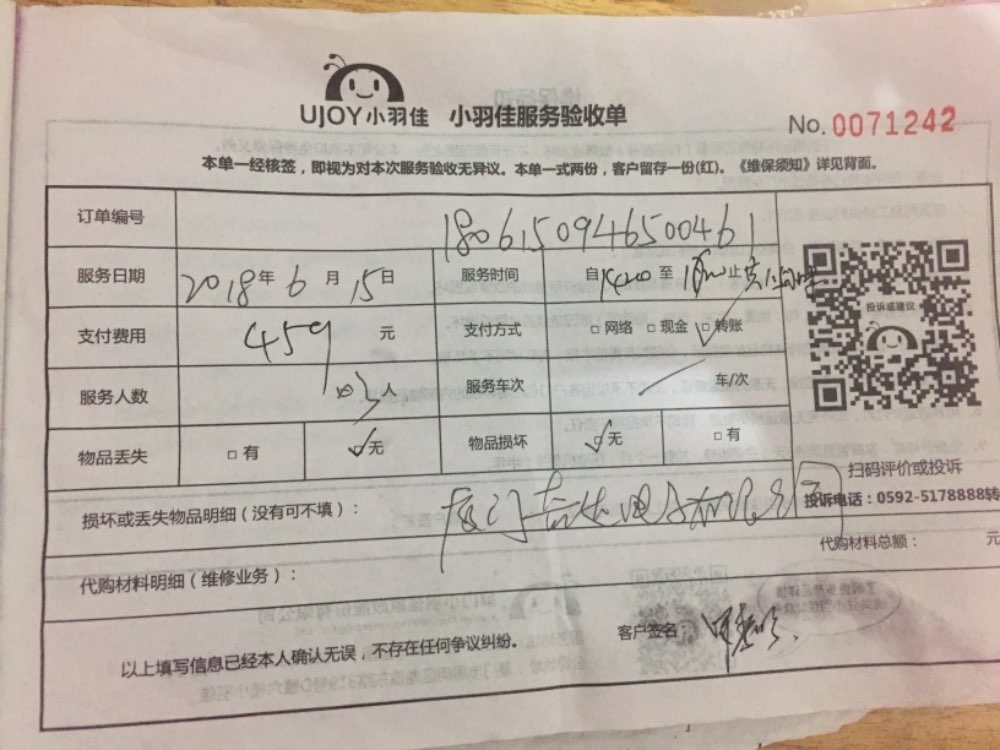 UJOY小羽佳 小羽佳服务验收单
No.0071242
本单一经核签，即视为对本次服务验收无异议。本单一式两份，客户留存一份(红)。《维保须知》详见背面。
订单编号 1806150946500461
服务日期 2018年6月15日 服务时间 自1400至1800止
投诉或建议
支付费用 459元 支付方式 □网络 □现金 □转账
服务人数 服务车次 车/次
物品丢失 □有 □无 物品损坏 □无 □有
扫码评价或投诉
损坏或丢失物品明细（没有可不填）：
投诉电话：0592-5178888转
代购材料明细（维修业务）： 代购材料总额： 元
以上填写信息已经本人确认无误，不存在任何争议纠纷。 客户签名